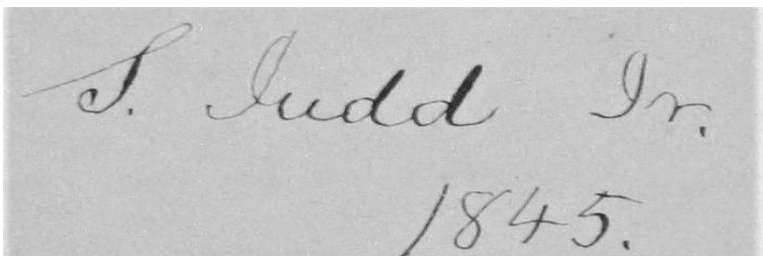 S. Judd Jr.
1845.